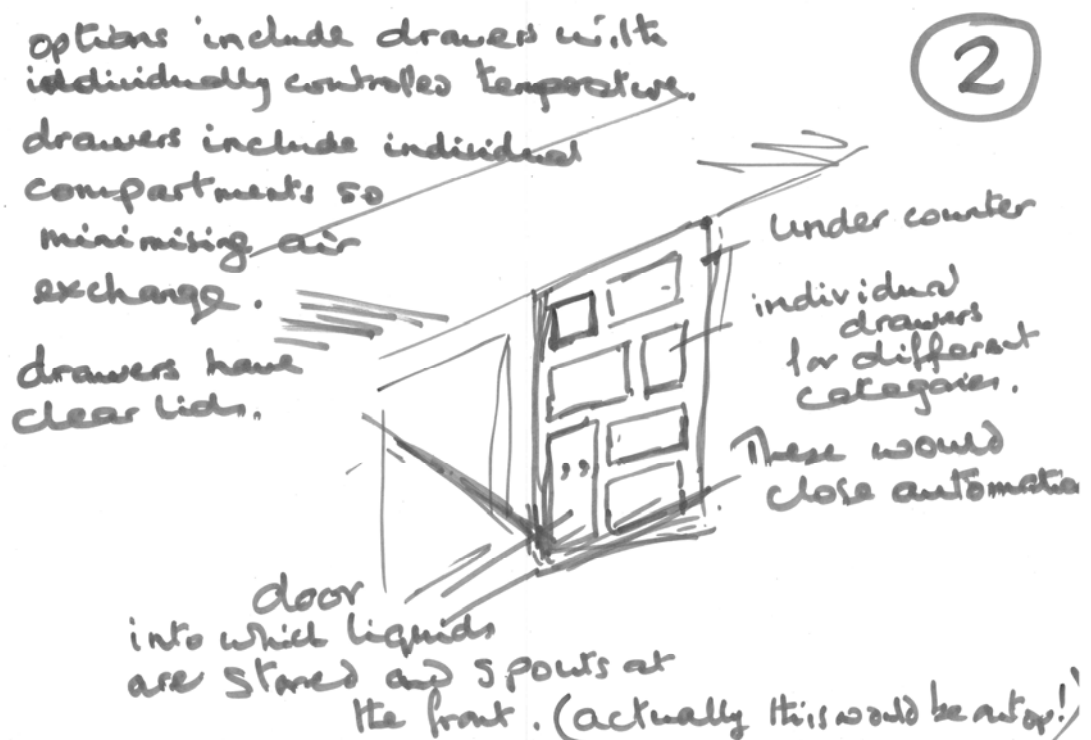 options include drawers with
individually controled temperature.
drawers include individual
compartments so
minimising air
exchange.
drawers have
clear lids.
2
under counter
individual
drawers
for different
categories.
These would
close automatica
door
into which liquids
are stored and spouts at
the front. (actually this would be on top!)